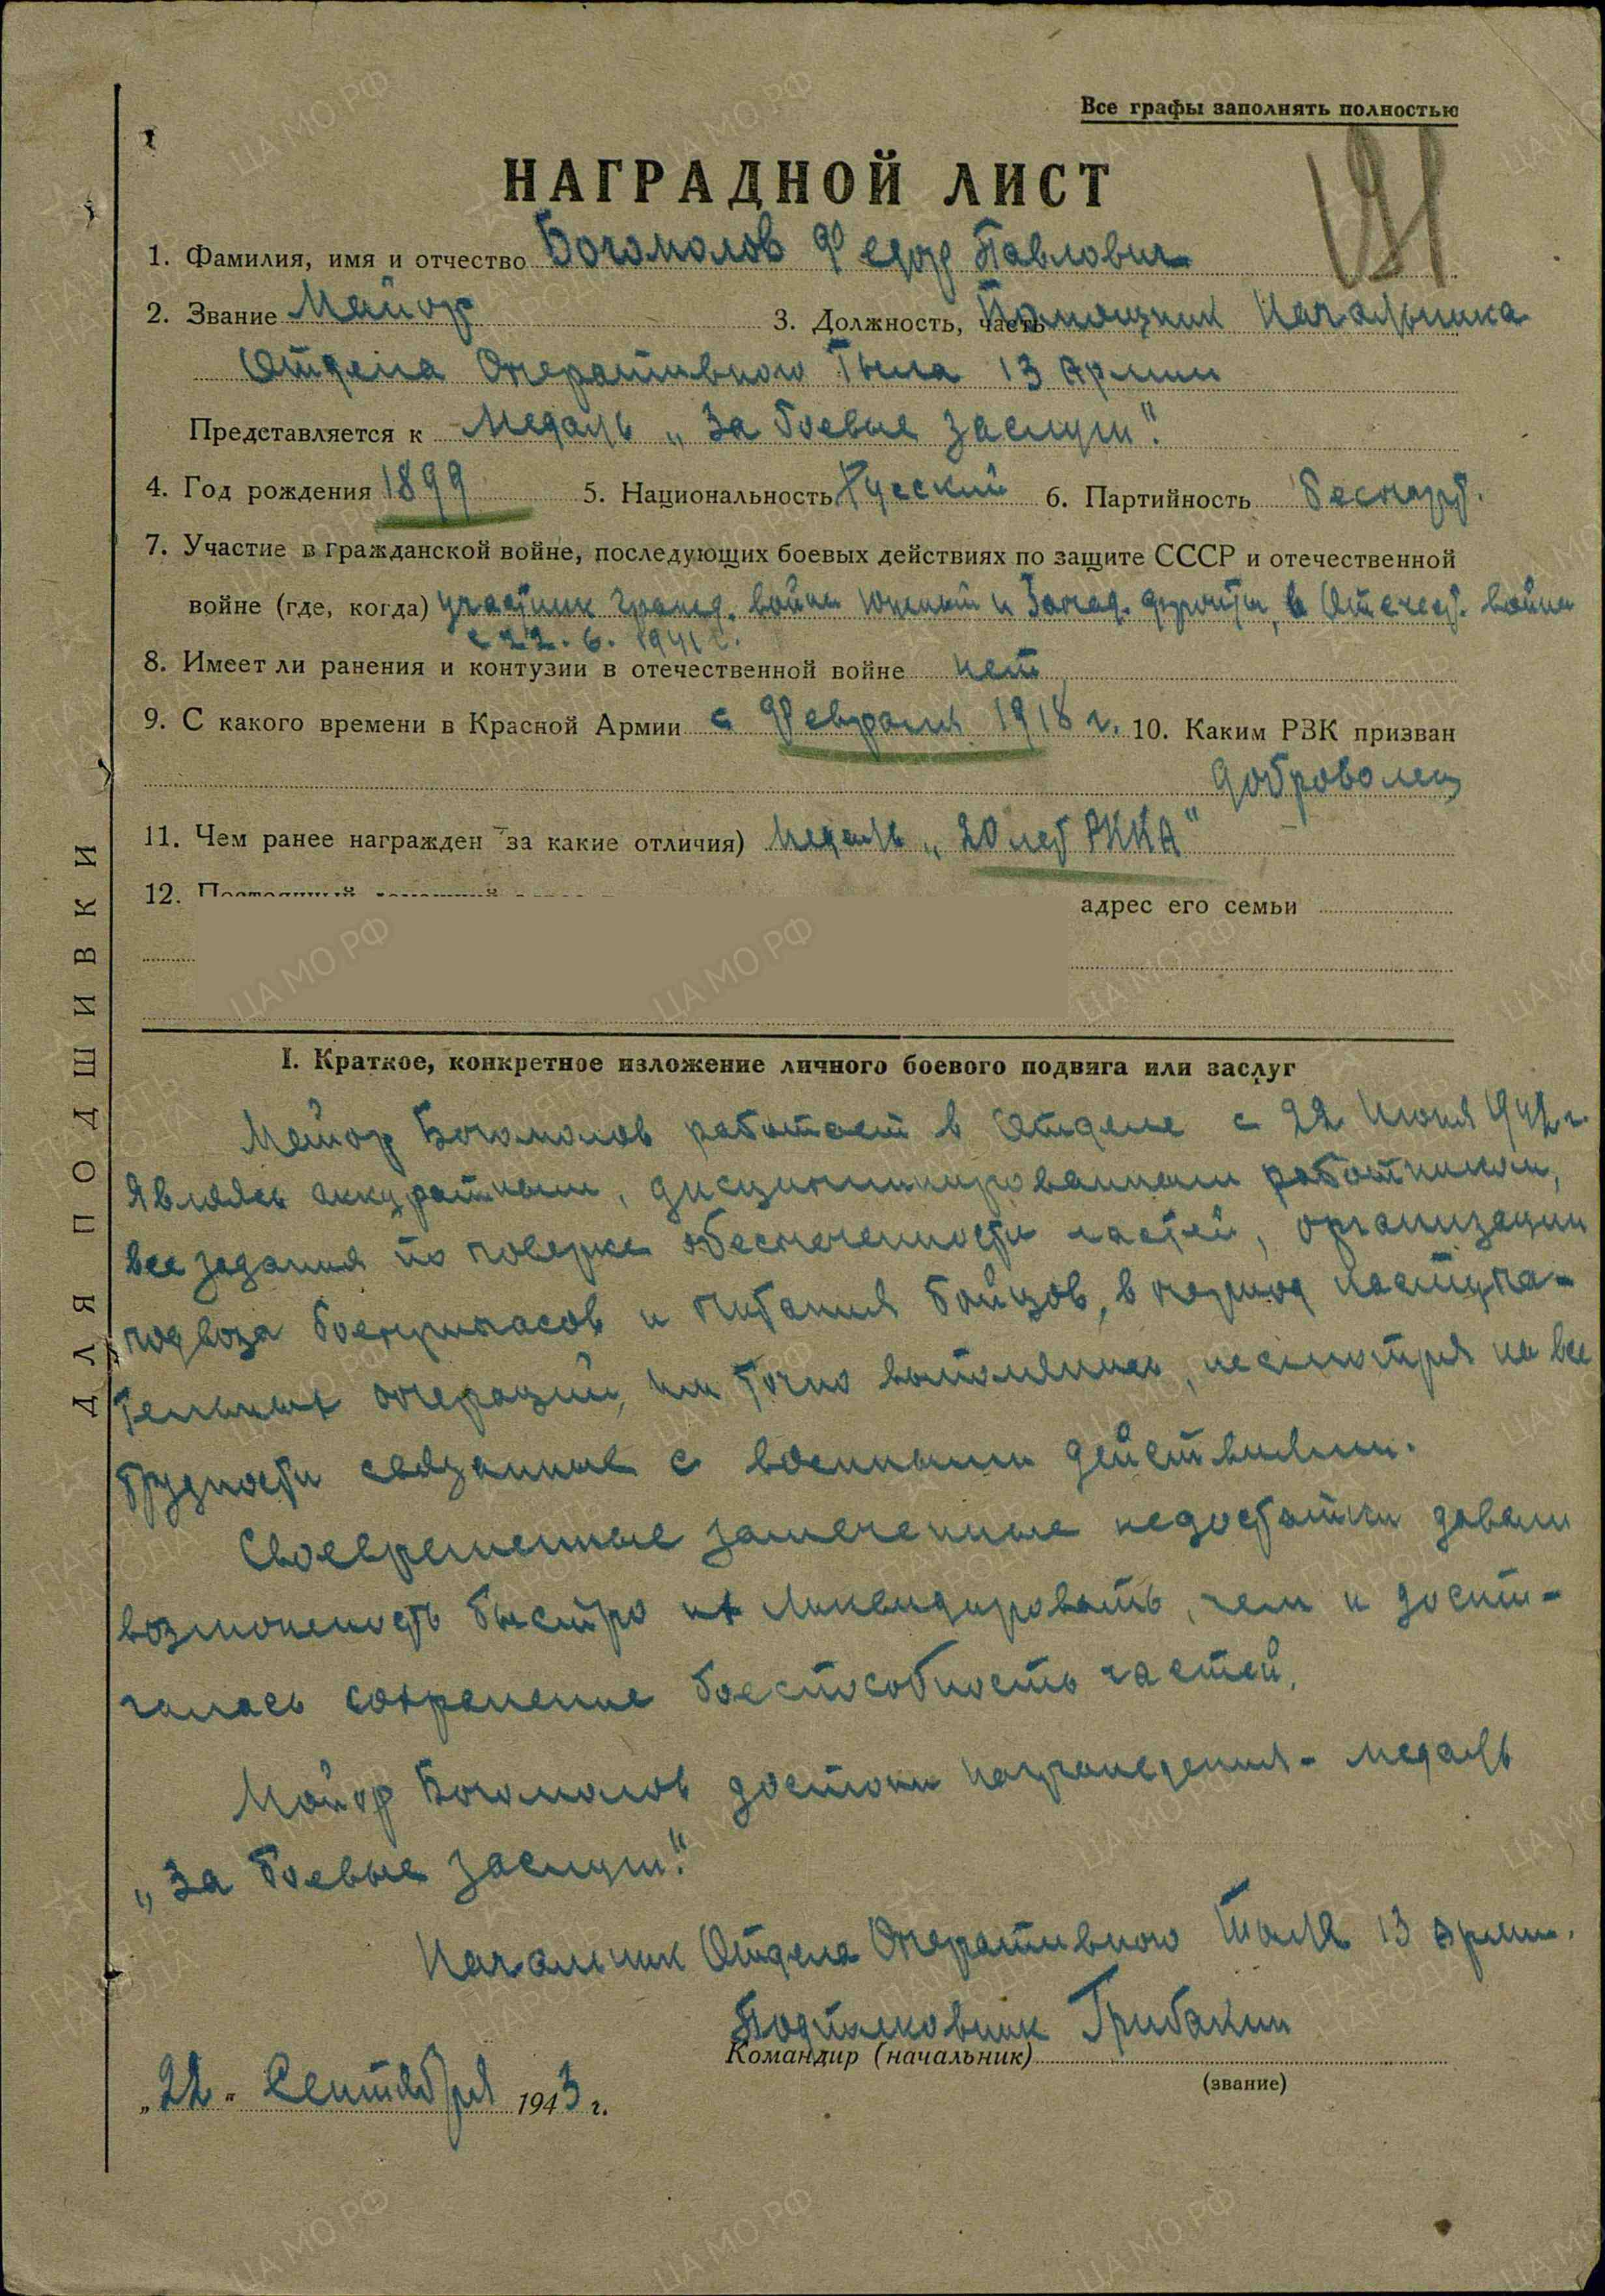 Все графы заполнять полностью
НАГРАДНОЙ ЛИСТ
1. Фамилия, имя и отчество Богомолов Федор Павлович
2. Звание Майор 3. Должность, часть Помощник Начальника
Отдела Оперативного Тыла 13 Армии
Представляется к Медаль „За боевые заслуги".
4. Год рождения 1899 5. Национальность Русский 6. Партийность беспарт.
7. Участие в гражданской войне, последующих боевых действиях по защите СССР и отечественной
войне (где, когда) участник гражд. войны южный и Запад. фронты, в Отечест. войне
с 22.6.1941 г.
8. Имеет ли ранения и контузии в отечественной войне нет
9. С какого времени в Красной Армии с Февраля 1918 г. 10. Каким РВК призван
доброволец
11. Чем ранее награжден за какие отличия) Медаль „20 лет РККА"
12. Постоянный домашний адрес адрес его семьи
ДЛЯ ПОДШИВКИ
I. Краткое, конкретное изложение личного боевого подвига или заслуг
Майор Богомолов работает в Отделе с 22 Июня 1942 г.
Являясь аккуратным, дисциплинированным работником,
все задания по поверке обеспеченности частей, организации
подвоза боеприпасов и питания бойцов, в период наступа-
тельных операций, им точно выполнялись, несмотря на все
трудности связанные с военными действиями.
Своевременные замеченные недостатки давали
возможность быстро их ликвидировать, чем и дости-
галась сохранение боеспособность частей.
Майор Богомолов достоин награждения - медаль
„За боевые заслуги".
Начальник Отдела Оперативного Тыла 13 Армии.
Подполковник Грибакин
Командир (начальник)
(звание)
„22" Сентября 1943 г.
ЦА МО РФ
ПАМЯТЬ НАРОДА